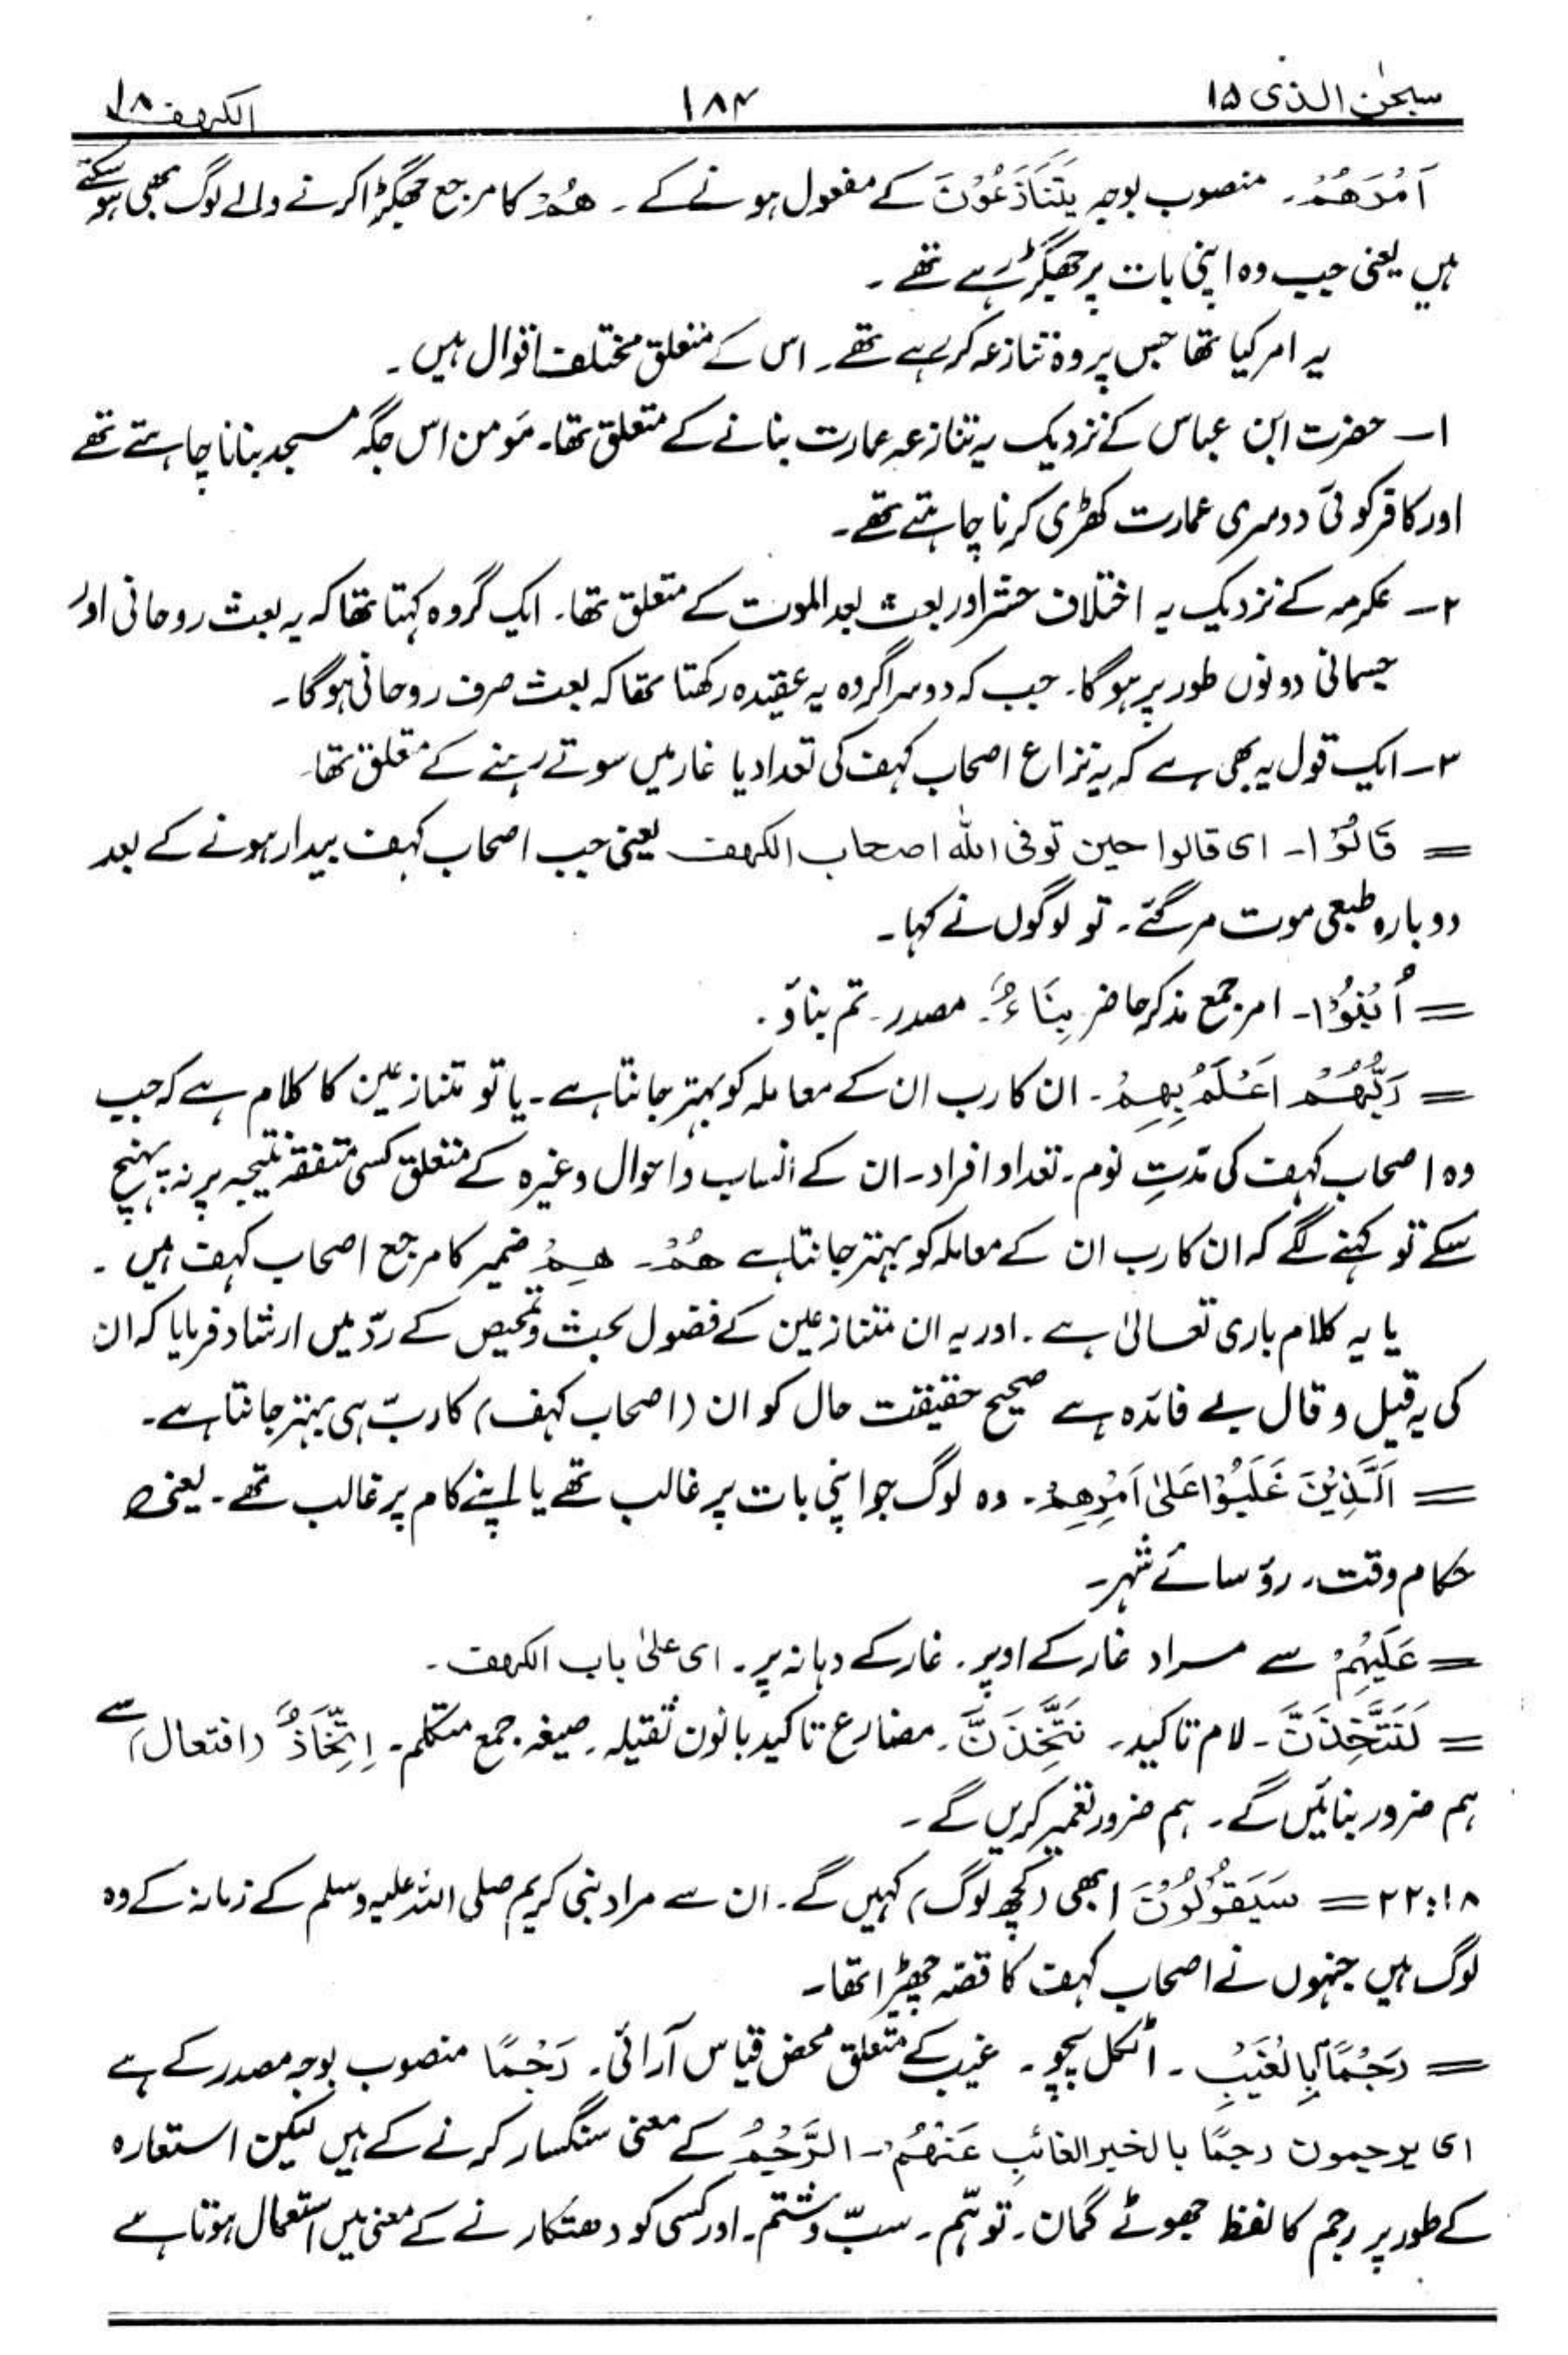 سبحٰن الذی ۱۵ ۱۸۴ الکہف ۱۸
اَمْرَھُمْ۔ منصوب بوجہ یَتَنَازَعُوْنَ کے مفعول ہونے کے۔ ھُمْ کا مرجع جھگڑا کرنے والے لوگ بھی ہو سکتے
ہیں یعنی جب وہ اپنی بات پر جھگڑ رہے تھے۔
یہ امر کیا تھا جس پر وہ تنازعہ کر رہے تھے۔ اس کے متعلق مختلف اقوال ہیں۔
۱۔ حضرت ابن عباس کے نزدیک یہ تنازعہ عمارت بنانے کے متعلق تھا۔ مؤمن اس جگہ مسجد بنانا چاہتے تھے
اور کافر کوئی دوسری عمارت کھڑی کرنا چاہتے تھے۔
۲۔ عکرمہ کے نزدیک یہ اختلاف حشر اور بعث بعد الموت کے متعلق تھا۔ ایک گروہ کہتا تھا کہ یہ بعث روحانی اور
جسمانی دونوں طور پر ہوگا۔ جب کہ دوسرا گروہ یہ عقیدہ رکھتا تھا کہ بعث صرف روحانی ہوگا۔
۳۔ ایک قول یہ بھی ہے کہ یہ نزاع اصحاب کہف کی تعداد یا غار میں سوتے رہنے کے متعلق تھا۔
= قَالُوْا۔ ای قالوا حین توفی اللہ اصحاب الکہف یعنی جب اصحاب کہف بیدار ہونے کے بعد
دوبارہ طبعی موت مر گئے۔ تو لوگوں نے کہا۔
= اُبْنُوْا۔ امر جمع مذکر حاضر بِنَاءٌ۔ مصدر۔ تم بناؤ۔
= رَبُّھُمْ اَعْلَمُ بِھِمْ۔ ان کا رب ان کے معاملہ کو بہتر جانتا ہے۔ یا تو متنازعین کا کلام ہے کہ جب
وہ اصحاب کہف کی مدّتِ نوم۔ تعداد افراد۔ ان کے انساب و احوال وغیرہ کے متعلق کسی متفقہ نتیجہ پر نہ پہنچ
سکے تو کہنے لگے کہ ان کا رب ان کے معاملہ کو بہتر جانتا ہے ھُمْ۔ ھِمْ ضمیر کا مرجع اصحاب کہف ہیں۔
یا یہ کلام باری تعالیٰ ہے۔ اور یہ ان متنازعین کے فضول بحث و تمحیص کے ردّ میں ارشاد فرمایا کہ ان
کی یہ قیل و قال بے فائدہ ہے صحیح حقیقت حال کو ان (اصحاب کہف) کا ربّ ہی بہتر جانتا ہے۔
= اَلَّذِیْنَ غَلَبُوْا عَلٰی اَمْرِھِمْ۔ وہ لوگ جو اپنی بات پر غالب تھے یا اپنے کام پر غالب تھے۔ یعنی
حکام وقت، رؤسائے شہر۔
= عَلَیْھِمْ سے مراد غار کے اوپر۔ غار کے دہانہ پر۔ ای علیٰ باب الکہف۔
= لَنَتَّخِذَنَّ۔ لام تاکید۔ نَتَّخِذَنَّ۔ مضارع تاکید بانون ثقیلہ۔ صیغہ جمع متکلم۔ اِتِّخَاذٌ (افتعال) سے
ہم ضرور بنائیں گے۔ ہم ضرور تعمیر کریں گے۔
۱۸:۲۲ = سَیَقُوْلُوْنَ ابھی (کچھ لوگ) کہیں گے۔ ان سے مراد نبی کریم صلی اللہ علیہ وسلم کے زمانہ کے وہ
لوگ ہیں جنہوں نے اصحاب کہف کا قصہ چھیڑا تھا۔
= رَجْمًا بِالْغَیْبِ۔ اٹکل پچو۔ غیب کے متعلق محض قیاس آرائی۔ رَجْمًا منصوب بوجہ مصدر کے ہے
ای یرجمون رجمًا بالخبر الغائب عَنْھُمْ۔ الرَّجْمُ کے معنی سنگسار کرنے کے ہیں لیکن استعارہ
کے طور پر رجم کا لفظ جھوٹے گمان۔ توہّم۔ سبّ وشتم۔ اور کسی کو دھتکارنے کے معنی میں استعمال ہوتا ہے